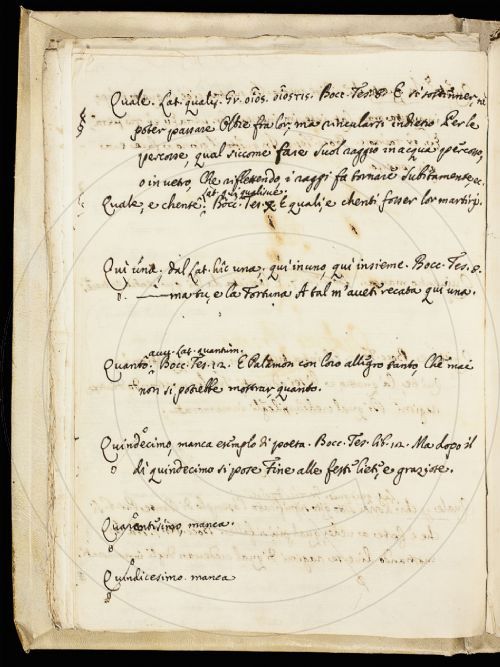 Quale. Lat. qualis. Gr. οἷος. οἷοςτις. Bocc. Tes. 8. E si sostinner, ni
poter passare Oltre fra lor, ma rincularsi indietro Per le
percosse, qual siccome fare Suol raggio in acqua percosso,
o in vetro, Che riflettendo i raggi fa tornare Subitamente, ec.
Lat. qui qualisve.
Quale, e chente. Bocc. Tes. 8. E quali, e chenti fosser lor martiri.
Qui una, dal Lat. hic una. qui in uno, qui insieme. Bocc. Tes. 8.
ma tu, e la Fortuna A tal m'aveti recata qui una.
avv. Lat. quantum.
Quanto. Bocc. Tes. 12. E Palamon con loro allegro tanto, Che mai
non si potrebbe mostrar, quanto.
Quindecimo, manca esemplo di poeta. Bocc. Tes. lib. 12. Ma dopo il
dì quindecimo si pose Fine alle festi lieti, e graziose.
Quarantesimo, manca.
Quindicesimo. manca